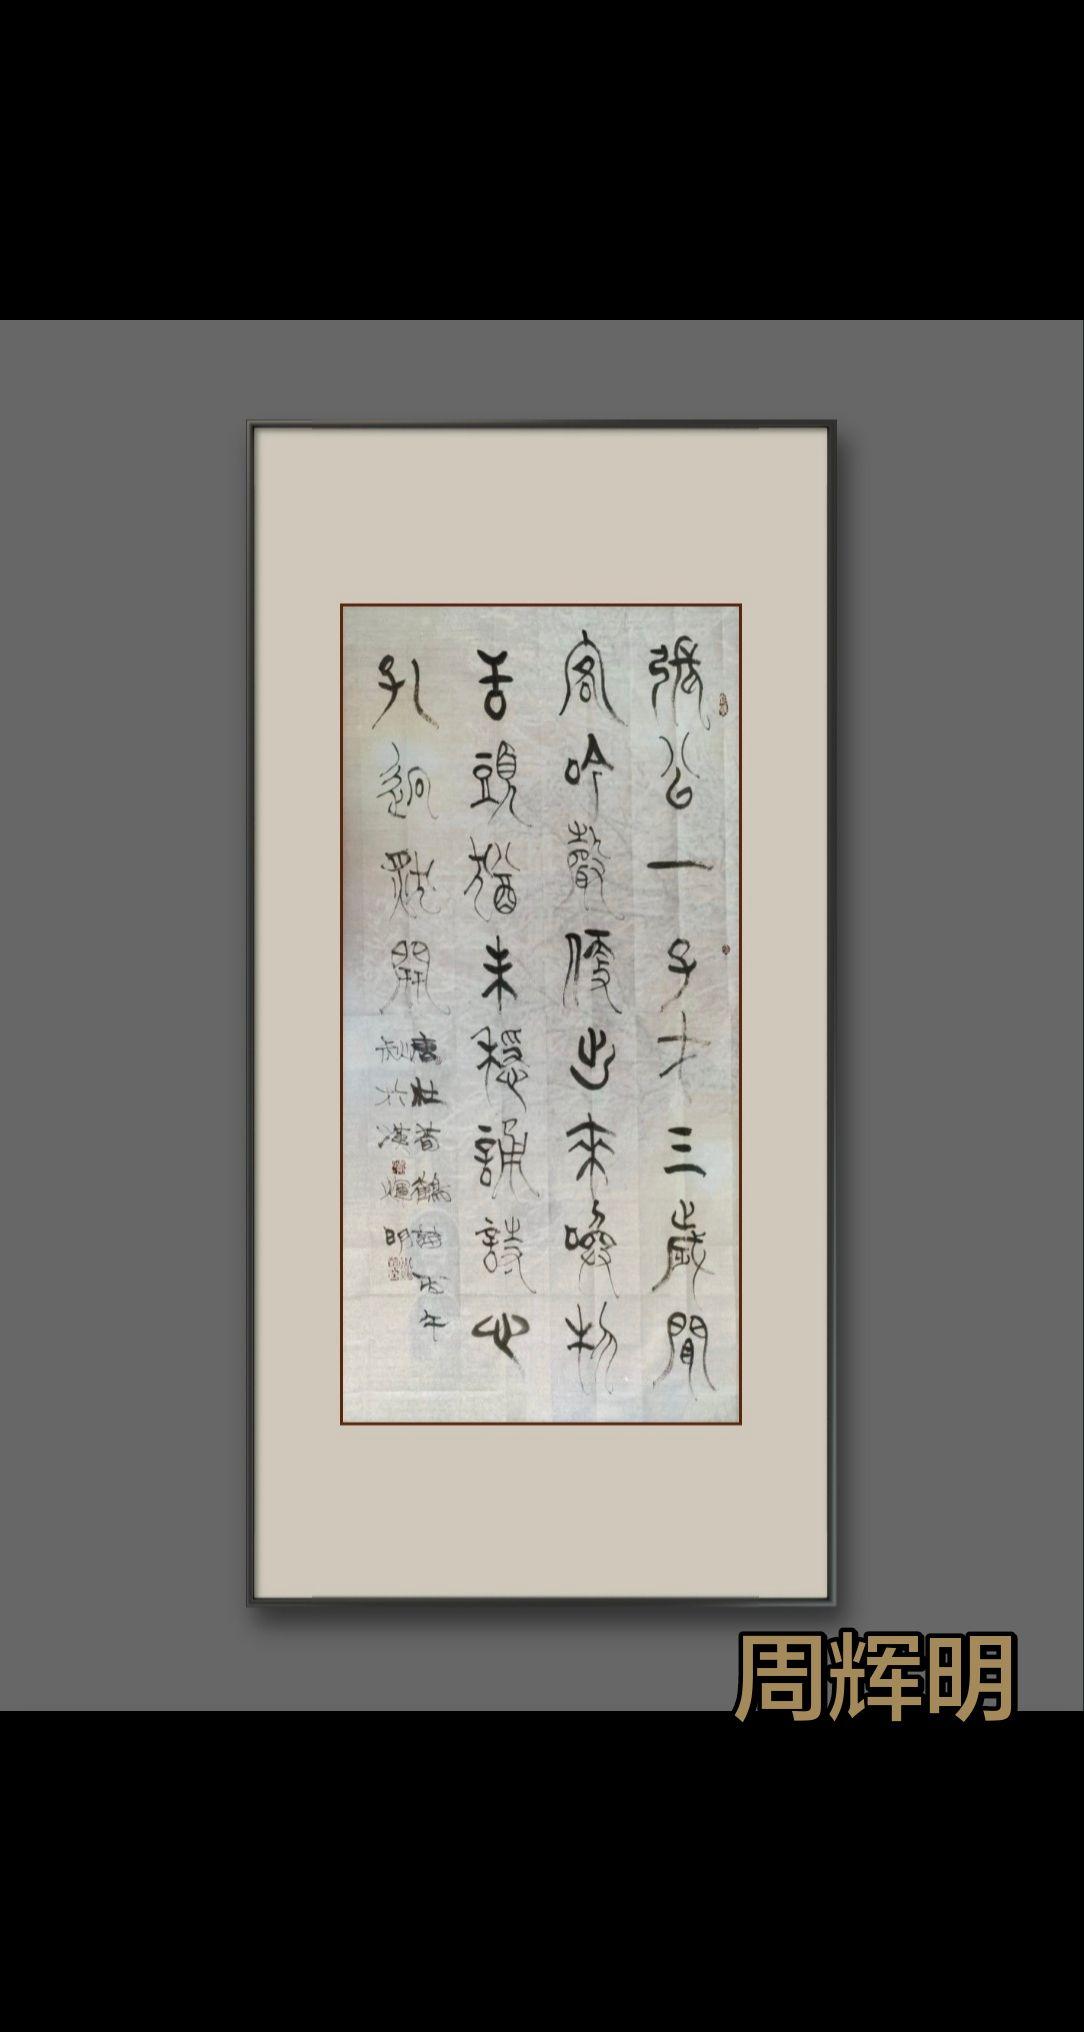 張公一子才三歲聞
客吟聲便出來喚物
舌頭猶未穩誦詩心
孔迥然開
唐杜荀鶴詩丙午
秋於漢輝明
周辉明